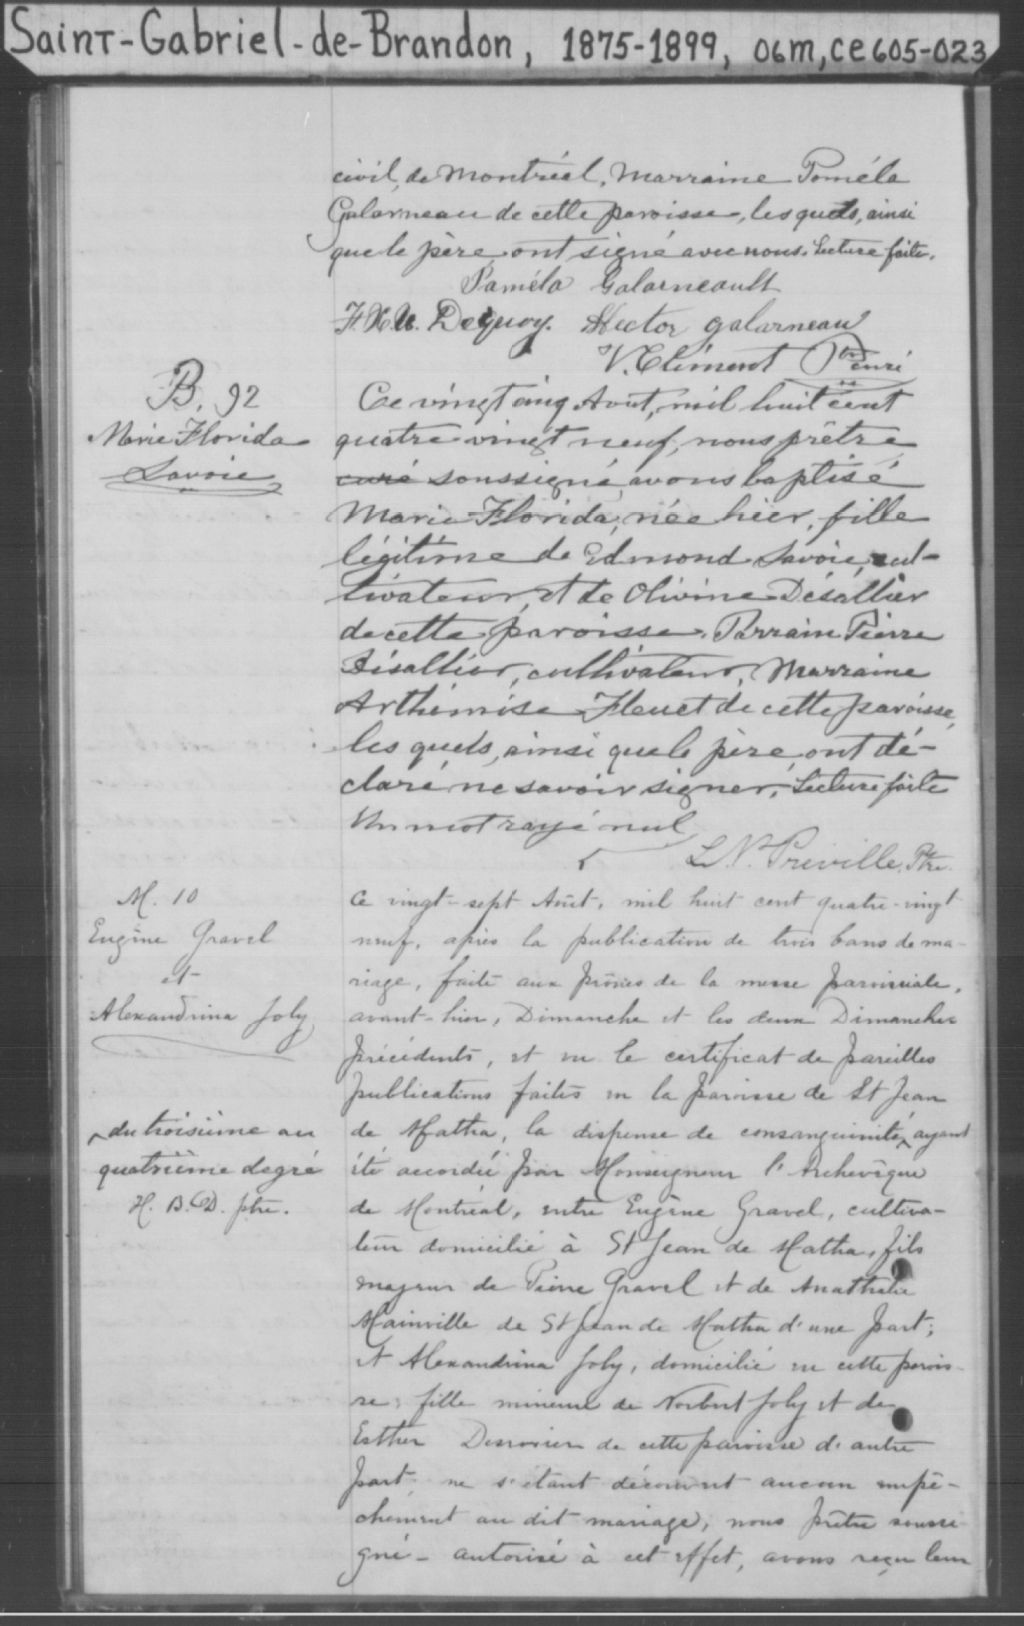 Saint-Gabriel-de-Brandon, 1875-1899, 06m, ce605-023
civil, de Montréal, Marraine Poméla
Galarneau de cette paroisse, lesquels, ainsi
que le père ont signé avec nous. Lecture faite.
Paméla Galarneault
F.X.U. Dequoy. Hector galarneau
V. Clément Ptre curé
B. 92
Marie Florida
Savoie
Ce vingt cinq Aout, mil huit cent
quatre vingt neuf, nous prêtre
curé soussigné, avons baptisé
Marie Florida, née hier, fille
légitime de Edmond Savoie, cul-
tivateur, et de Olivine Désallier
de cette paroisse. Parrain Pierre
Désallier, cultivateur, Marraine
Arthémise Heuet de cette paroisse,
les quels, ainsi que le père, ont dé-
claré ne savoir signer, Lecture faite
Un mot rayé nul
L.N. Préville, Ptre.
M. 10
Eugène Gravel
et
Alexandrina Joly
Ce vingt-sept Août, mil huit cent quatre-vingt
neuf, après la publication de trois bans de ma-
riage, faite aux prônes de la messe paroissiale,
avant-hier, Dimanche et les deux Dimanches
précédents, et vu le certificat de pareilles
publications faites en la paroisse de St Jean
de Matha, la dispense de consanguinité ^ ayant
^ du troisième au
quatrième degré
H. B. D. ptre.
été accordée par Monseigneur l'Archevêque
de Montréal, entre Eugène Gravel, cultiva-
teur domicilié à St Jean de Matha, fils
majeur de Pierre Gravel et de Anathalie
Mainville de St Jean de Matha d'une part;
et Alexandrina Joly, domicilié en cette parois-
se, fille mineure de Norbert Joly et de
Esther Desrosiers de cette paroisse d'autre
part; ne s'étant découvert aucun empê-
chement au dit mariage, nous prêtre soussi-
gné - autorisé à cet effet, avons reçu leur